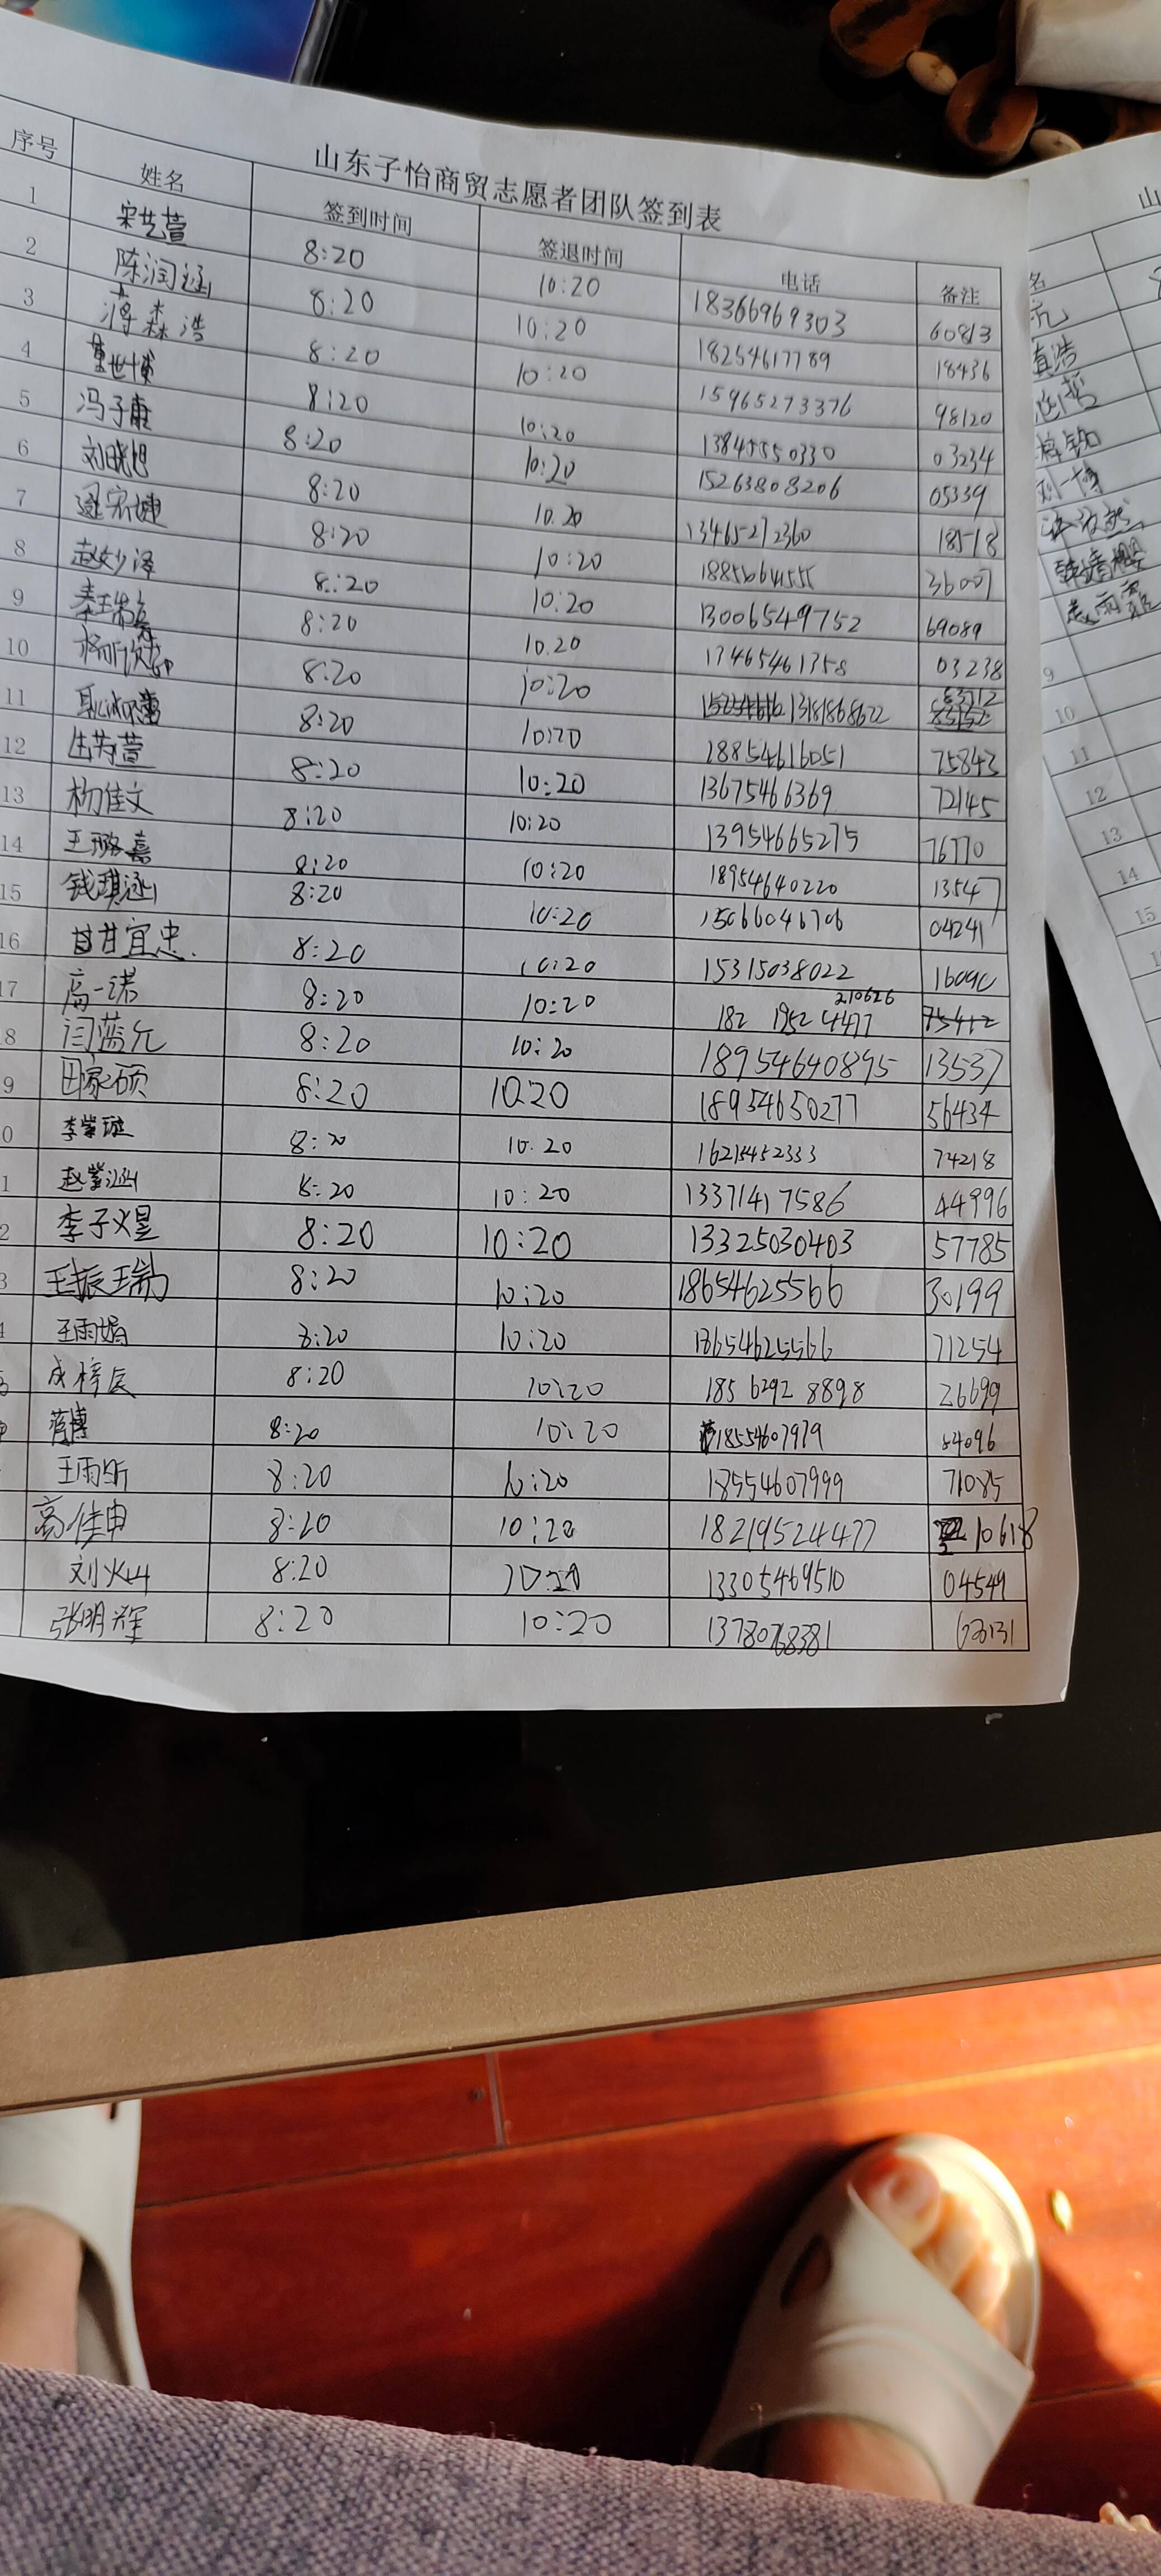 山东子怡商贸志愿者团队签到表
序号 姓名 签到时间 签退时间 电话 备注
1 宋艺萱 8:20 10:20 18366969303 60813
2 陈润涵 8:20 10:20 18254617789 18436
3 蒋森浩 8:20 10:20 15965273376 98120
4 董世博 8:20 10:20 13845550330 03234
5 冯子康 8:20 10:20 15263808206 05339
6 刘晓旭 8:20 10.20 13465272360 18518
7 8:20 10:20 36007
8 赵妙泽 8:20 10:20 13006549752 69089
9 8:20 10.20 17465461358 03238
10 8:20 10:20 13181868622 83712
11 8:20 10:20 18854616051 75843
12 8:20 10:20 13675466369 72145
13 杨佳文 8:20 10:20 13954665275 76770
14 王璐嘉 8:20 10:20 18954640220 13547
15 钱琪涵 8:20 10:20 15066046706 04241
16 甘宜忠 8:20 10:20 15315038022 16090
17 高一诺 8:20 10:20 182 1952 4477 210626
8 闫蓝允 8:20 10:20 18954640895 13537
9 田家硕 8:20 10:20 18954650277 56434
0 李紫璇 8:20 10:20 16215452333 74218
1 赵紫涵 8:20 10:20 13371417586 44996
2 李子煜 8:20 10:20 13325030403 57785
3 王振瑞 8:20 10:20 18654625566 30199
4 王雨娟 8:20 10:20 18654625566 71254
成梓辰 8:20 10:20 185 6292 8898 26699
蒋博 8:20 10:20 18554607979 84096
王雨昕 8:20 10:20 18554607999 71085
高佳申 8:20 10:20 18219524477 10618
刘火山 8:20 10:20 13305469510 04549
张明辉 8:20 10:20 13780768381 63131
山
名
元
直浩
刘一博
9
10
11
12
13
14
15